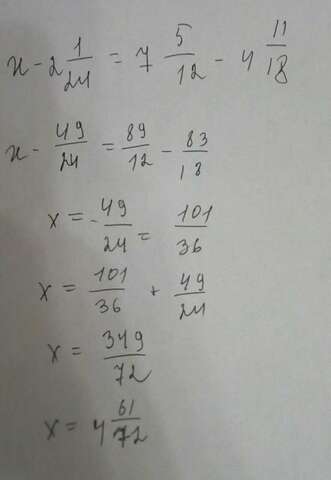 x - 2 1/24 = 7 5/12 - 4 11/18
x - 49/24 = 89/12 - 83/18
x = - 49/24 = 101/36
x = 101/36 + 49/24
x = 349/72
x = 4 61/72